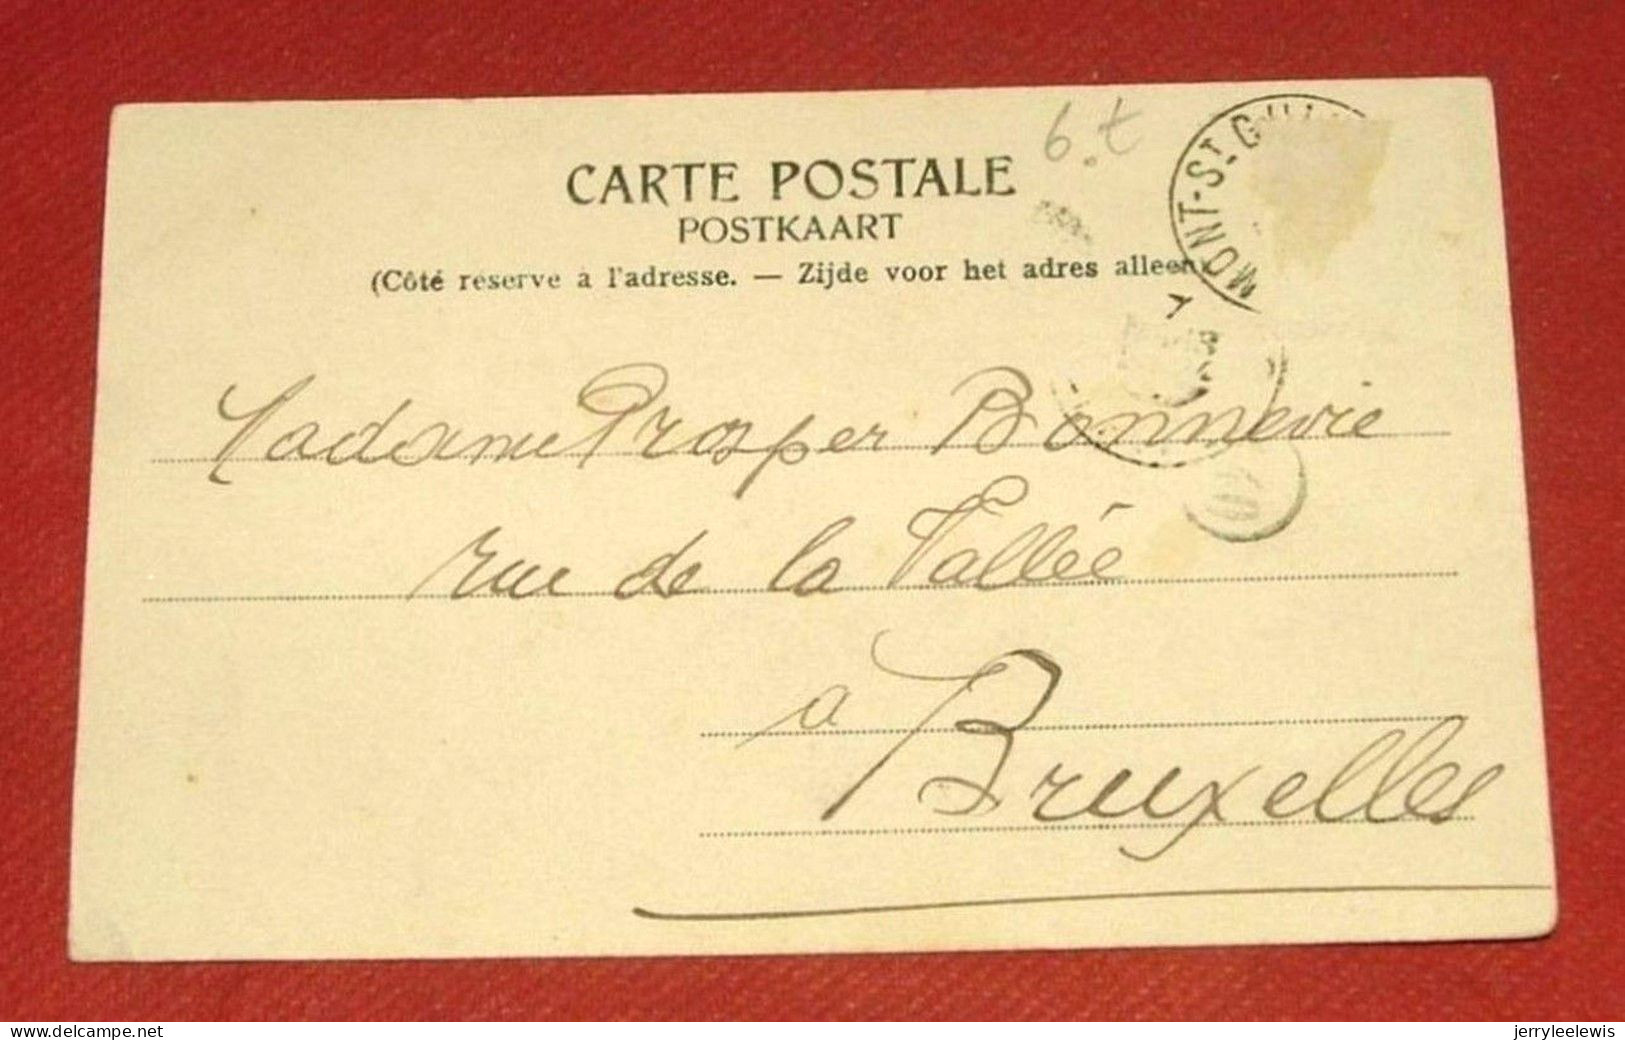 6.t
CARTE POSTALE
POSTKAART
(Côté reserve a l'adresse. — Zijde voor het adres alleen)
MONT-ST-G
Madame Prosper Bonnevie
rue de la Vallée
a
Bruxelles
www.delcampe.net
jerryleelewis